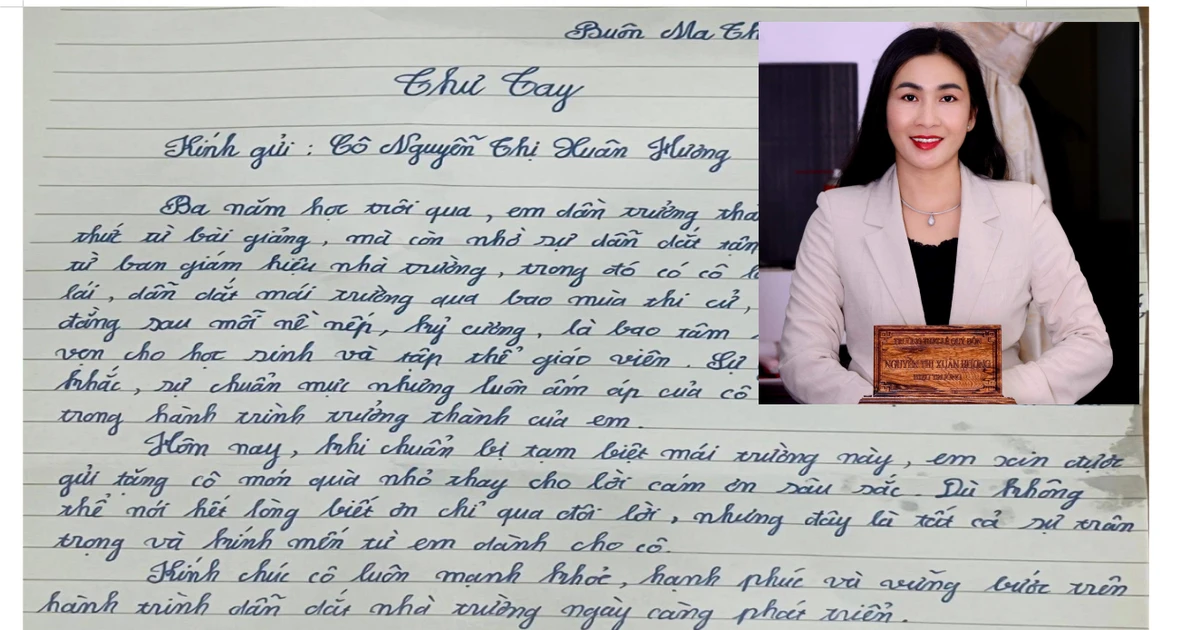 Buôn Ma Th
Thư Tay
Kính gửi : Cô Nguyễn Thị Xuân Hương
Ba năm học trôi qua , em dần trưởng thà
thức từ bài giảng , mà còn nhờ sự dẫn dắt tận
từ ban giám hiệu nhà trường , trong đó có cô l
lái , dẫn dắt mái trường qua bao mùa thi cử ,
đằng sau mỗi nề nếp , kỷ cương , là bao tâm
vẹn cho học sinh và tập thể giáo viên . Sự
khắc , sự chuẩn mực nhưng luôn ấm áp của cô
trong hành trình trưởng thành của em .
Hôm nay , khi chuẩn bị tạm biệt mái trường này , em xin được
gửi tặng cô món quà nhỏ thay cho lời cám ơn sâu sắc . Dù không
thể nói hết lòng biết ơn chỉ qua đôi lời , nhưng đây là tất cả sự trân
trọng và kính mến từ em dành cho cô .
Kính chúc cô luôn mạnh khỏe , hạnh phúc và vững bước trên
hành trình dẫn dắt nhà trường ngày càng phát triển .
TRƯỜNG THPT LÊ QUÝ ĐÔN
NGUYỄN THỊ XUÂN HƯƠNG
HIỆU TRƯỞNG